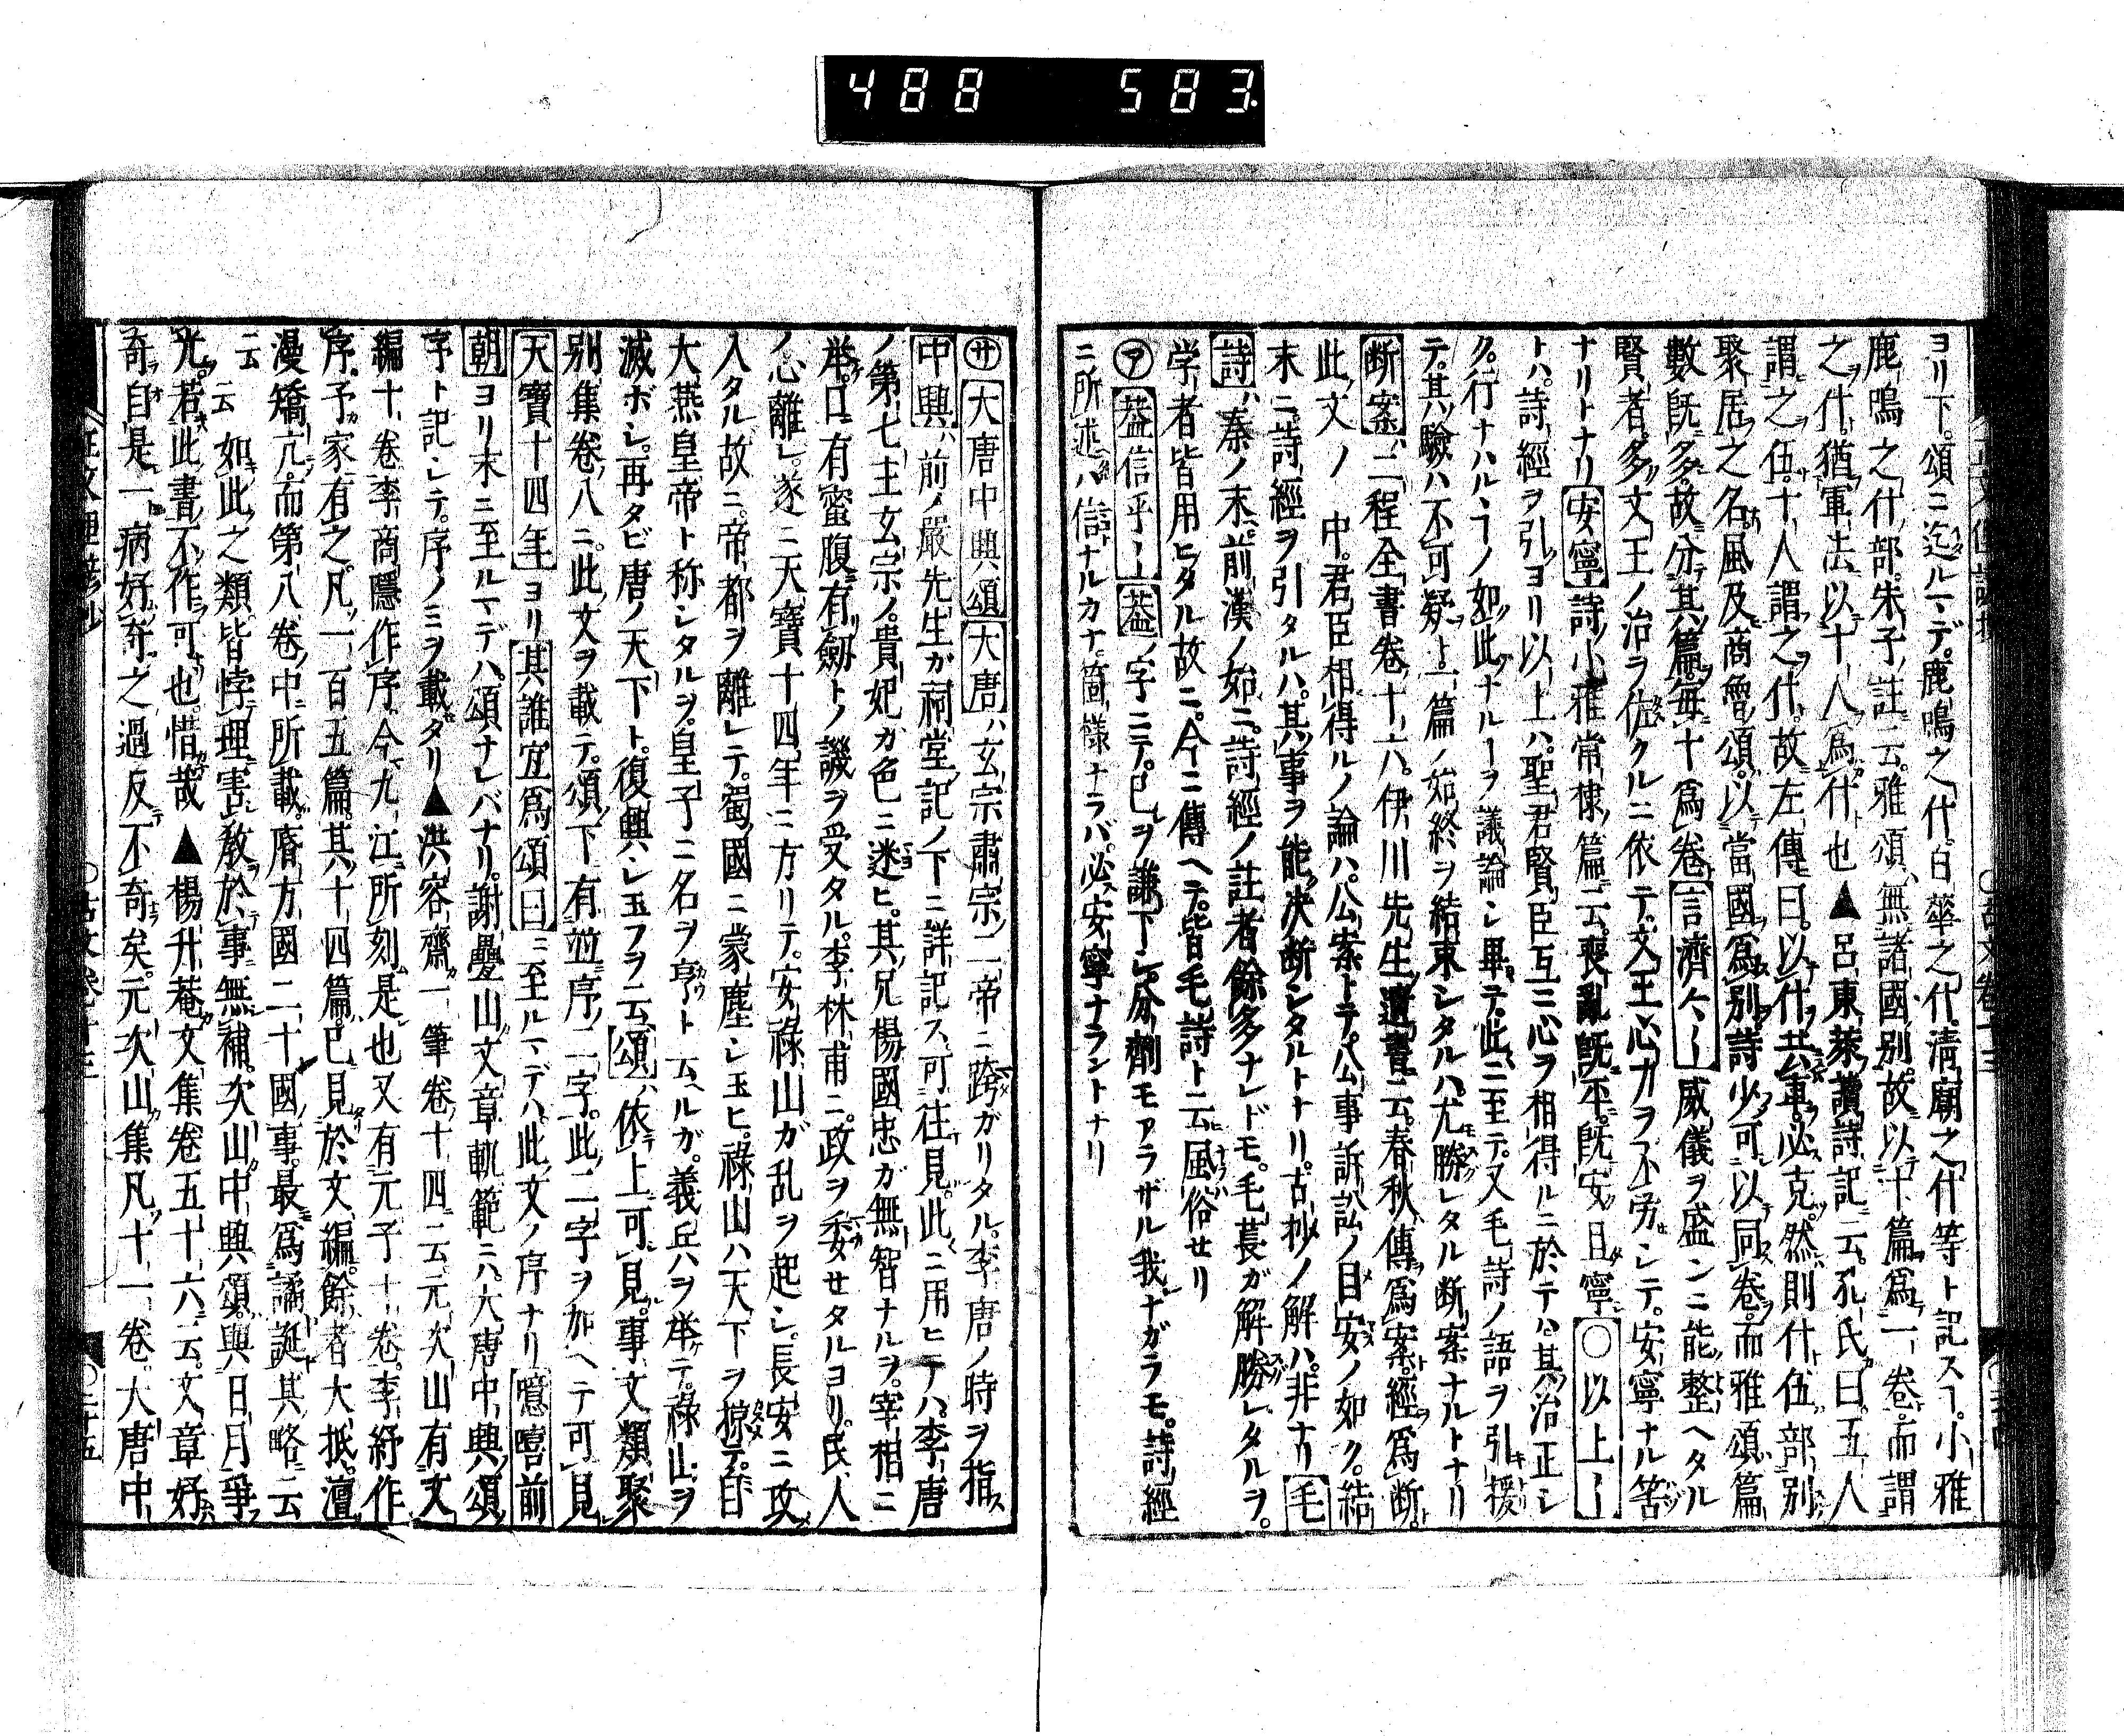 488 583
ヨリ下。頌ニ迄ルマデ。鹿鳴之什。白華之什。清廟之什等ト記スヿ。小雅
鹿鳴之什部。朱子註云。雅頌無諸國別。故以十篇爲一卷。而謂
之什。猶軍法以十人爲什也▲呂東萊讀詩記云。孔氏曰。五人
謂之伍。十人謂之什。故左傳曰。以什共車。必克。然則什伍部別
聚居之名。風及商魯頌。以當國爲別。詩少可以同卷。而雅頌篇
數既多。故分其篇。毎十爲卷 言濟々ー 威儀ヲ盛ンニ能整ヘタル
賢者。多文王ノ治ヲ佐クルニ依テ。文王心力ヲ不労シテ。安寧ナル筈
ナリトナリ 安寧 詩小雅常棣篇云。喪亂既平。既安且寧 ○以上ー
トハ。詩經ヲ引ヨリ以上ハ。聖君賢臣互ニ心ヲ相得ルニ於テハ。其治正シ
ク。行ナハルヽヿノ如此ナルーヲ議論シ畢テ。此ニ至テ。又毛詩ノ語ヲ引援
テ。其驗ハ不可疑ト。一篇ノ始終ヲ結束シタルハ。尤勝レタル断案ナルトナリ
断案 二程全書卷十六。伊川先生遺書云。春秋傳爲案。經爲断。
此文ノ 中。君臣相得ルノ論ハ。公案トテ。公事訴訟ノ目安ノ如ク。結
末ニ。詩經ヲ引タルハ。其事ヲ能決断シタルトナリ。古抄ノ解ハ。非ナリ 毛
詩 秦ノ末。前漢ノ始ニ。詩經ノ註者餘多ナレドモ。毛萇ガ解勝レタルヲ。
学者皆用ヒタル故ニ。今ニ傳ヘテ。皆毛詩ト云風俗セリ
㋐ 葢信乎ー 葢ノ字ニテ。已ヲ謙下シ。分劑モアラザル我ナガラモ。詩經
ニ所述ハ信ナルカナ。箇様ナラバ。必安寧ナラントナリ
㋚ 大唐中興頌 大唐ハ玄宗肅宗二帝ニ跨ガリタル。李唐ノ時ヲ指ス
中興 前ノ嚴先生ガ祠堂記ノ下ニ詳記ス。可往見。此ニ用ヒテハ。李唐
ノ第七主玄宗ノ。貴妃ガ色ニ迷ヒ。其兄楊國忠ガ無智ナルヲ。宰相ニ
挙。口有蜜腹有劔トノ譏ヲ受タル。李林甫ニ。政ヲ委セタルヨリ。民人
ノ心離レ。遂ニ天寶十四年ニ方リテ。安禄山ガ乱ヲ起シ。長安ニ攻
入タル故ニ。帝都ヲ離レテ。蜀國ニ蒙塵シ玉ヒ。禄山ハ天下ヲ掠テ。自
大燕皇帝ト称シタルヲ。皇子ニ名ヲ亨ト云ヘルガ。義兵ヲ挙テ。禄山ヲ
滅ボシ。再タビ唐ノ天下ト。復興シ玉フヲ云 頌 依上可見。事文類聚
別集卷八ニ。此文ヲ載テ。頌下有並序二字。此二字ヲ加ヘテ可見
天寶十四年ヨリ 其誰宜爲頌曰ニ至ルマデハ。此文ノ序ナリ 噫嘻前
朝ヨリ末ニ至ルマデハ。頌ナレバナリ。謝疊山文章軌範ニハ。大唐中興頌
字ト記シテ。序ノミヲ載タリ▲洪容齋一筆卷十四云。元次山有文
編十卷。李商隱作序。今九江所刻是也。又有元子十卷。李紓作
序。予家有之。凡一百五篇。其十四篇。已見於文編。餘者大抵。澶
漫矯亢。而第八卷中所載。㬋方國二十國事。最爲譎誕。其略云
云云 如此之類。皆悖理害敎於事無補。次山中興頌。與日月爭
光。若此書不作可也。惜哉▲楊升菴文集卷五十六云。文章好
奇自是一病。好奇之過。反不奇矣。元次山集凡十一卷。大唐中